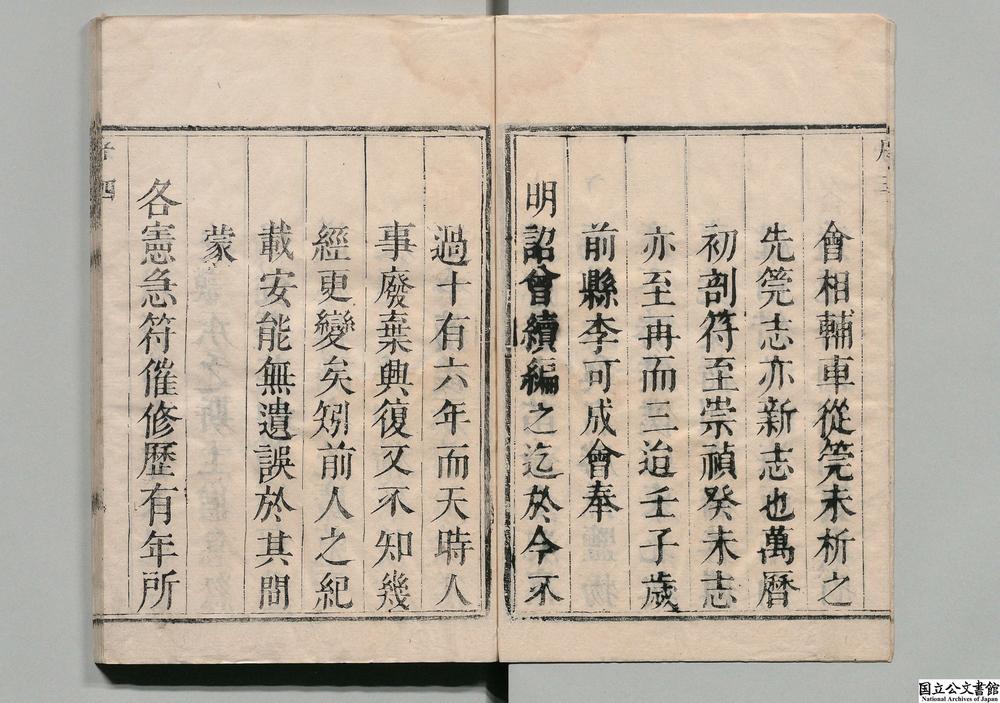 會相輔車從筦未析之
先筦志亦新志也萬曆
初剖符至崇禎癸未志
亦至再而三迨壬子歲
前縣李可成會奉
明詔曾續編之迄於今不
過十有六年而天時人
事廢棄興復又不知幾
經更變矣矧前人之紀
載安能無遺誤於其間
蒙
各憲急符催修歷有年所
国立公文書館
National Archives of Japan